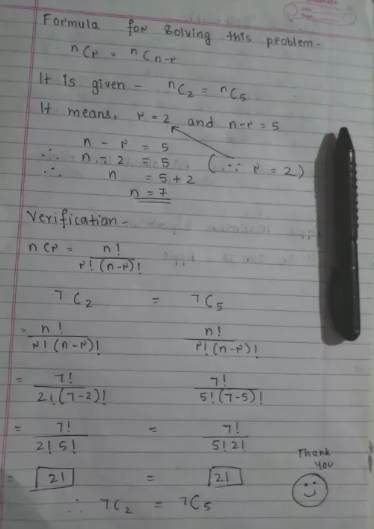 Formula for solving this problem-
ⁿCᵣ = ⁿCₙ₋ᵣ
It is given - ⁿC₂ = ⁿC₅
It means, r = 2 and n-r = 5
n - r = 5
∴ n - 2 = 5 (∵ r = 2)
∴ n = 5 + 2
n = 7
Verification -
nCr = n! / r! (n-r)!
⁷C₂ = ⁷C₅
= n! / r! (n-r)! n! / r! (n-r)!
= 7! / 2! (7-2)! 7! / 5! (7-5)!
= 7! / 2! 5! = 7! / 5! 2!
= 21 = 21
∴ ⁷C₂ = ⁷C₅
Thank
you